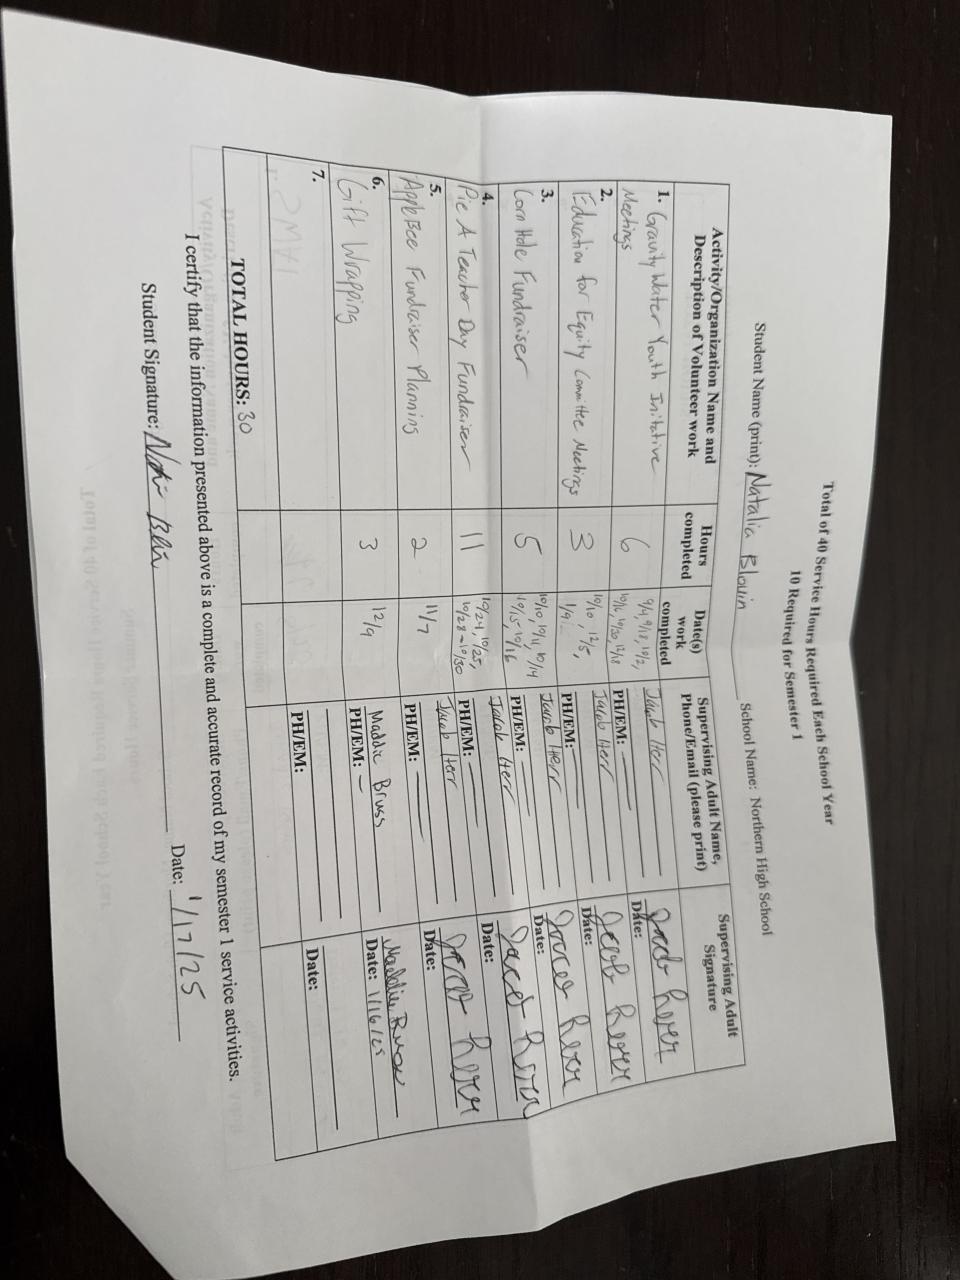 Total of 40 Service Hours Required Each School Year
10 Required for Semester 1
Student Name (print): Natalia Blouin School Name: Northern High School
Activity/Organization Name and
Description of Volunteer work
Hours
completed
Date(s)
work
completed
Supervising Adult Name,
Phone/Email (please print)
Supervising Adult
Signature
1. Gravity Water Youth Initative
Meetings
6
9/4, 9/18, 10/2,
10/16, 10/30, 12/18
Jacob Herr
PH/EM:
Date:
2.
Education for Equity Committee Meetings
3
10/10, 12/5,
1/9
Jacob Herr
PH/EM:
Date:
3.
Corn Hole Fundraiser
5
10/10, 10/11, 10/14
10/15-10/16
Jacob Herr
PH/EM:
Date:
4.
Pie A Teacher Day Fundraiser
11
10/24, 10/25,
10/28-10/30
Jacob Herr
PH/EM:
Date:
5.
AppleBee Fundraiser Planning
2
11/7
Jacob Herr
PH/EM:
Date:
6.
Gift Wrapping
3
12/9
Maddie Bruss
PH/EM:
Maddie Bruss
Date: 1/16/25
7.
PH/EM:
Date:
TOTAL HOURS: 30
I certify that the information presented above is a complete and accurate record of my semester 1 service activities.
Student Signature: Date: 1/17/25